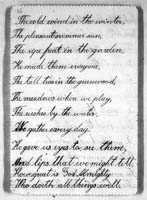 The cold wind in the winter,
The pleasant summer sun,
The ripe fruit in the garden,
He made them every one,
The tall trees in the greenwood,
The meadows when we play,
The rushes by the water,
We gather every day.
He gave us eyes to see them,
And lips that we might tell
How great is God Almighty
Who doth all things well.